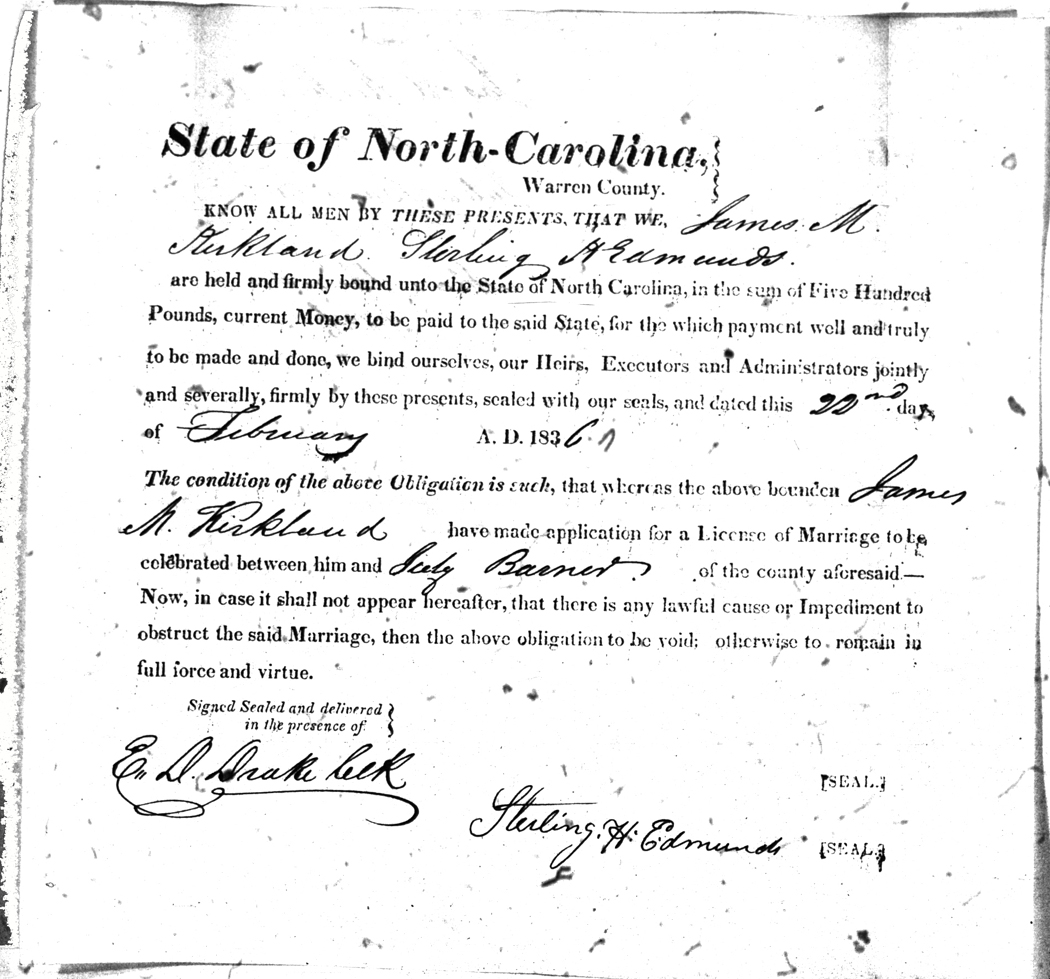 State of North-Carolina,
Warren County.
KNOW ALL MEN BY THESE PRESENTS, THAT WE, James M.
Kirkland Sterling H Edmunds.
are held and firmly bound unto the State of North Carolina, in the sum of Five Hundred
Pounds, current Money, to be paid to the said State, for the which payment well and truly
to be made and done, we bind ourselves, our Heirs, Executors and Administrators jointly
and severally, firmly by these presents, sealed with our seals, and dated this 22nd day
of February A. D. 1836
The condition of the above Obligation is such, that whereas the above bounden James
M. Kirkland have made application for a License of Marriage to be
celebrated between him and Barner of the county aforesaid.—
Now, in case it shall not appear hereafter, that there is any lawful cause or Impediment to
obstruct the said Marriage, then the above obligation to be void; otherwise to remain in
full force and virtue.
Signed Sealed and delivered
in the presence of
E. D. Drake Clk
[SEAL.]
Sterling. H. Edmunds [SEAL.]